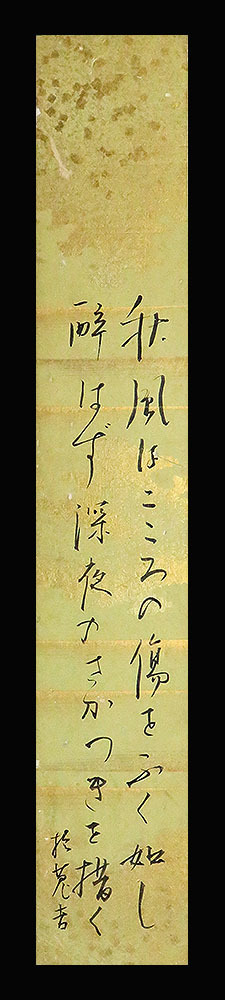 秋風はこころの傷をふく如し
酔はず深夜のさかつきを措く